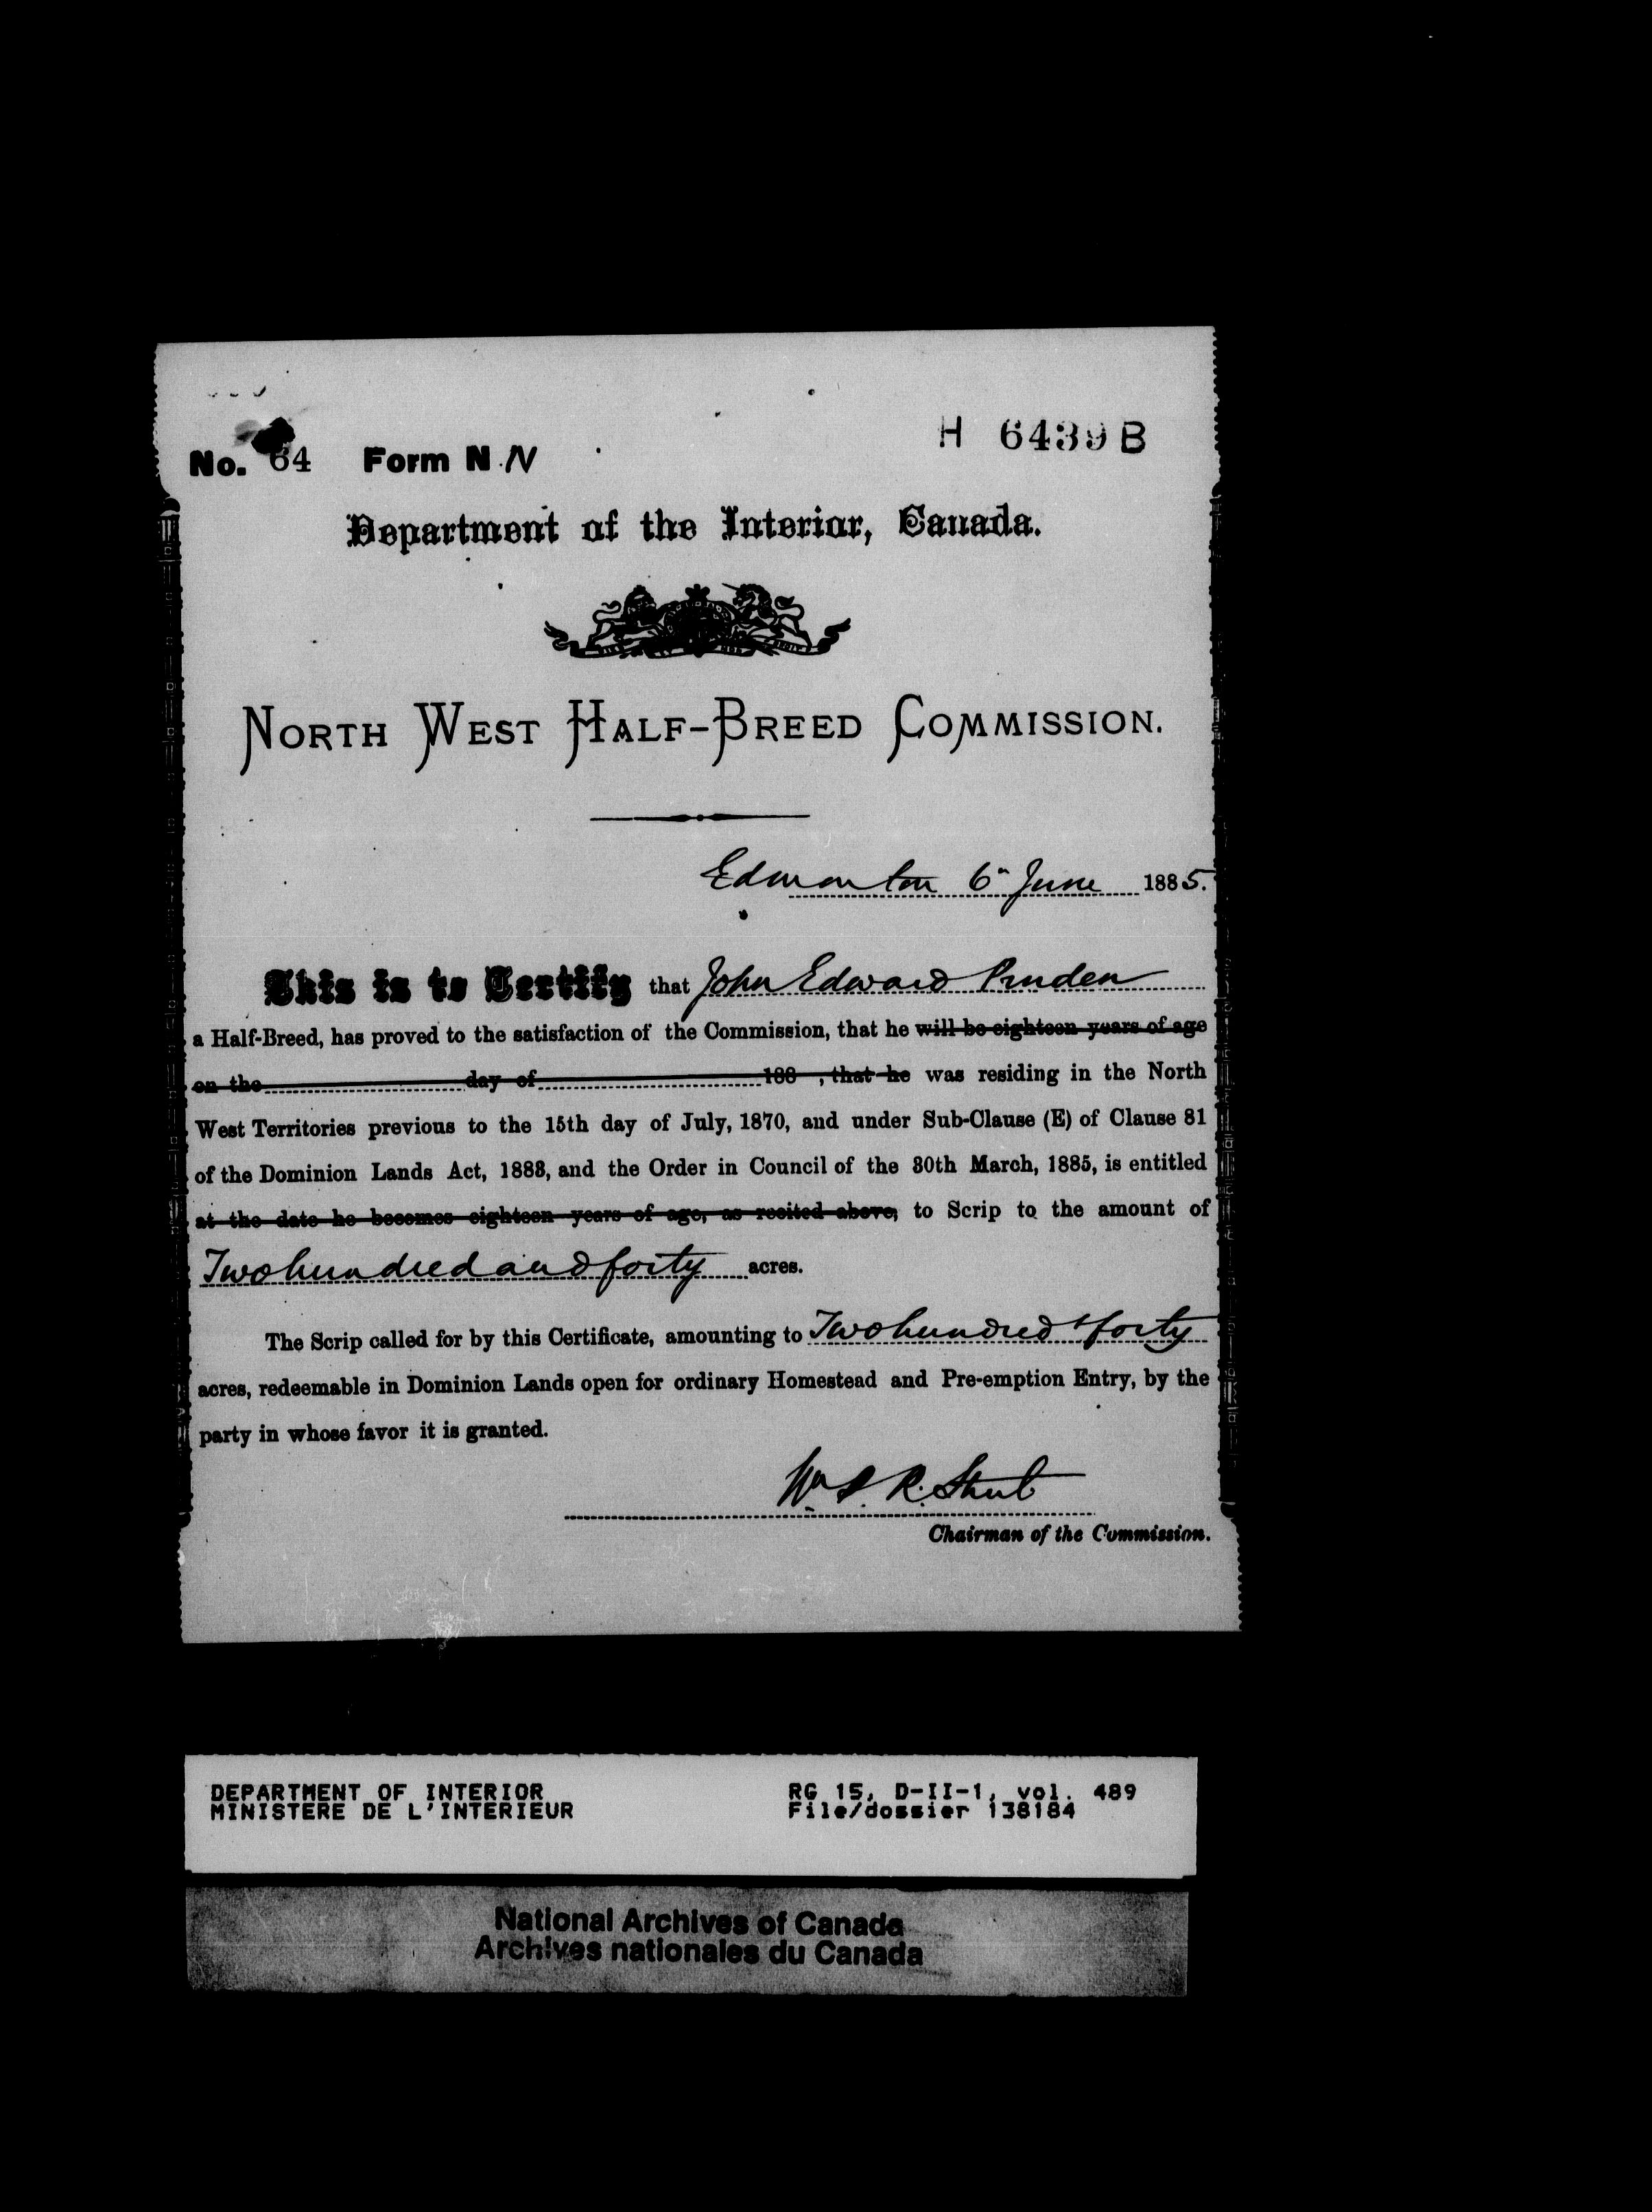 H 6439 B
No. 64 Form N IV
Department of the Interior, Canada.
NORTH WEST HALF-BREED COMMISSION.
Edmonton 6" June 1885.
This is to Certify that John Edward Pruden
a Half-Breed, has proved to the satisfaction of the Commission, that he will be eighteen years of age
on the day of 188 , that he was residing in the North
West Territories previous to the 15th day of July, 1870, and under Sub-Clause (E) of Clause 81
of the Dominion Lands Act, 1883, and the Order in Council of the 30th March, 1885, is entitled
at the date he becomes eighteen years of age, as recited above, to Scrip to the amount of
Two hundred and forty acres.
The Scrip called for by this Certificate, amounting to Two hundred & forty
acres, redeemable in Dominion Lands open for ordinary Homestead and Pre-emption Entry, by the
party in whose favor it is granted.
Wm P. R. Street
Chairman of the Commission.
DEPARTMENT OF INTERIOR RG 15, D-II-1, vol. 489
MINISTERE DE L'INTERIEUR File/dossier 138184
National Archives of Canada
Archives nationales du Canada